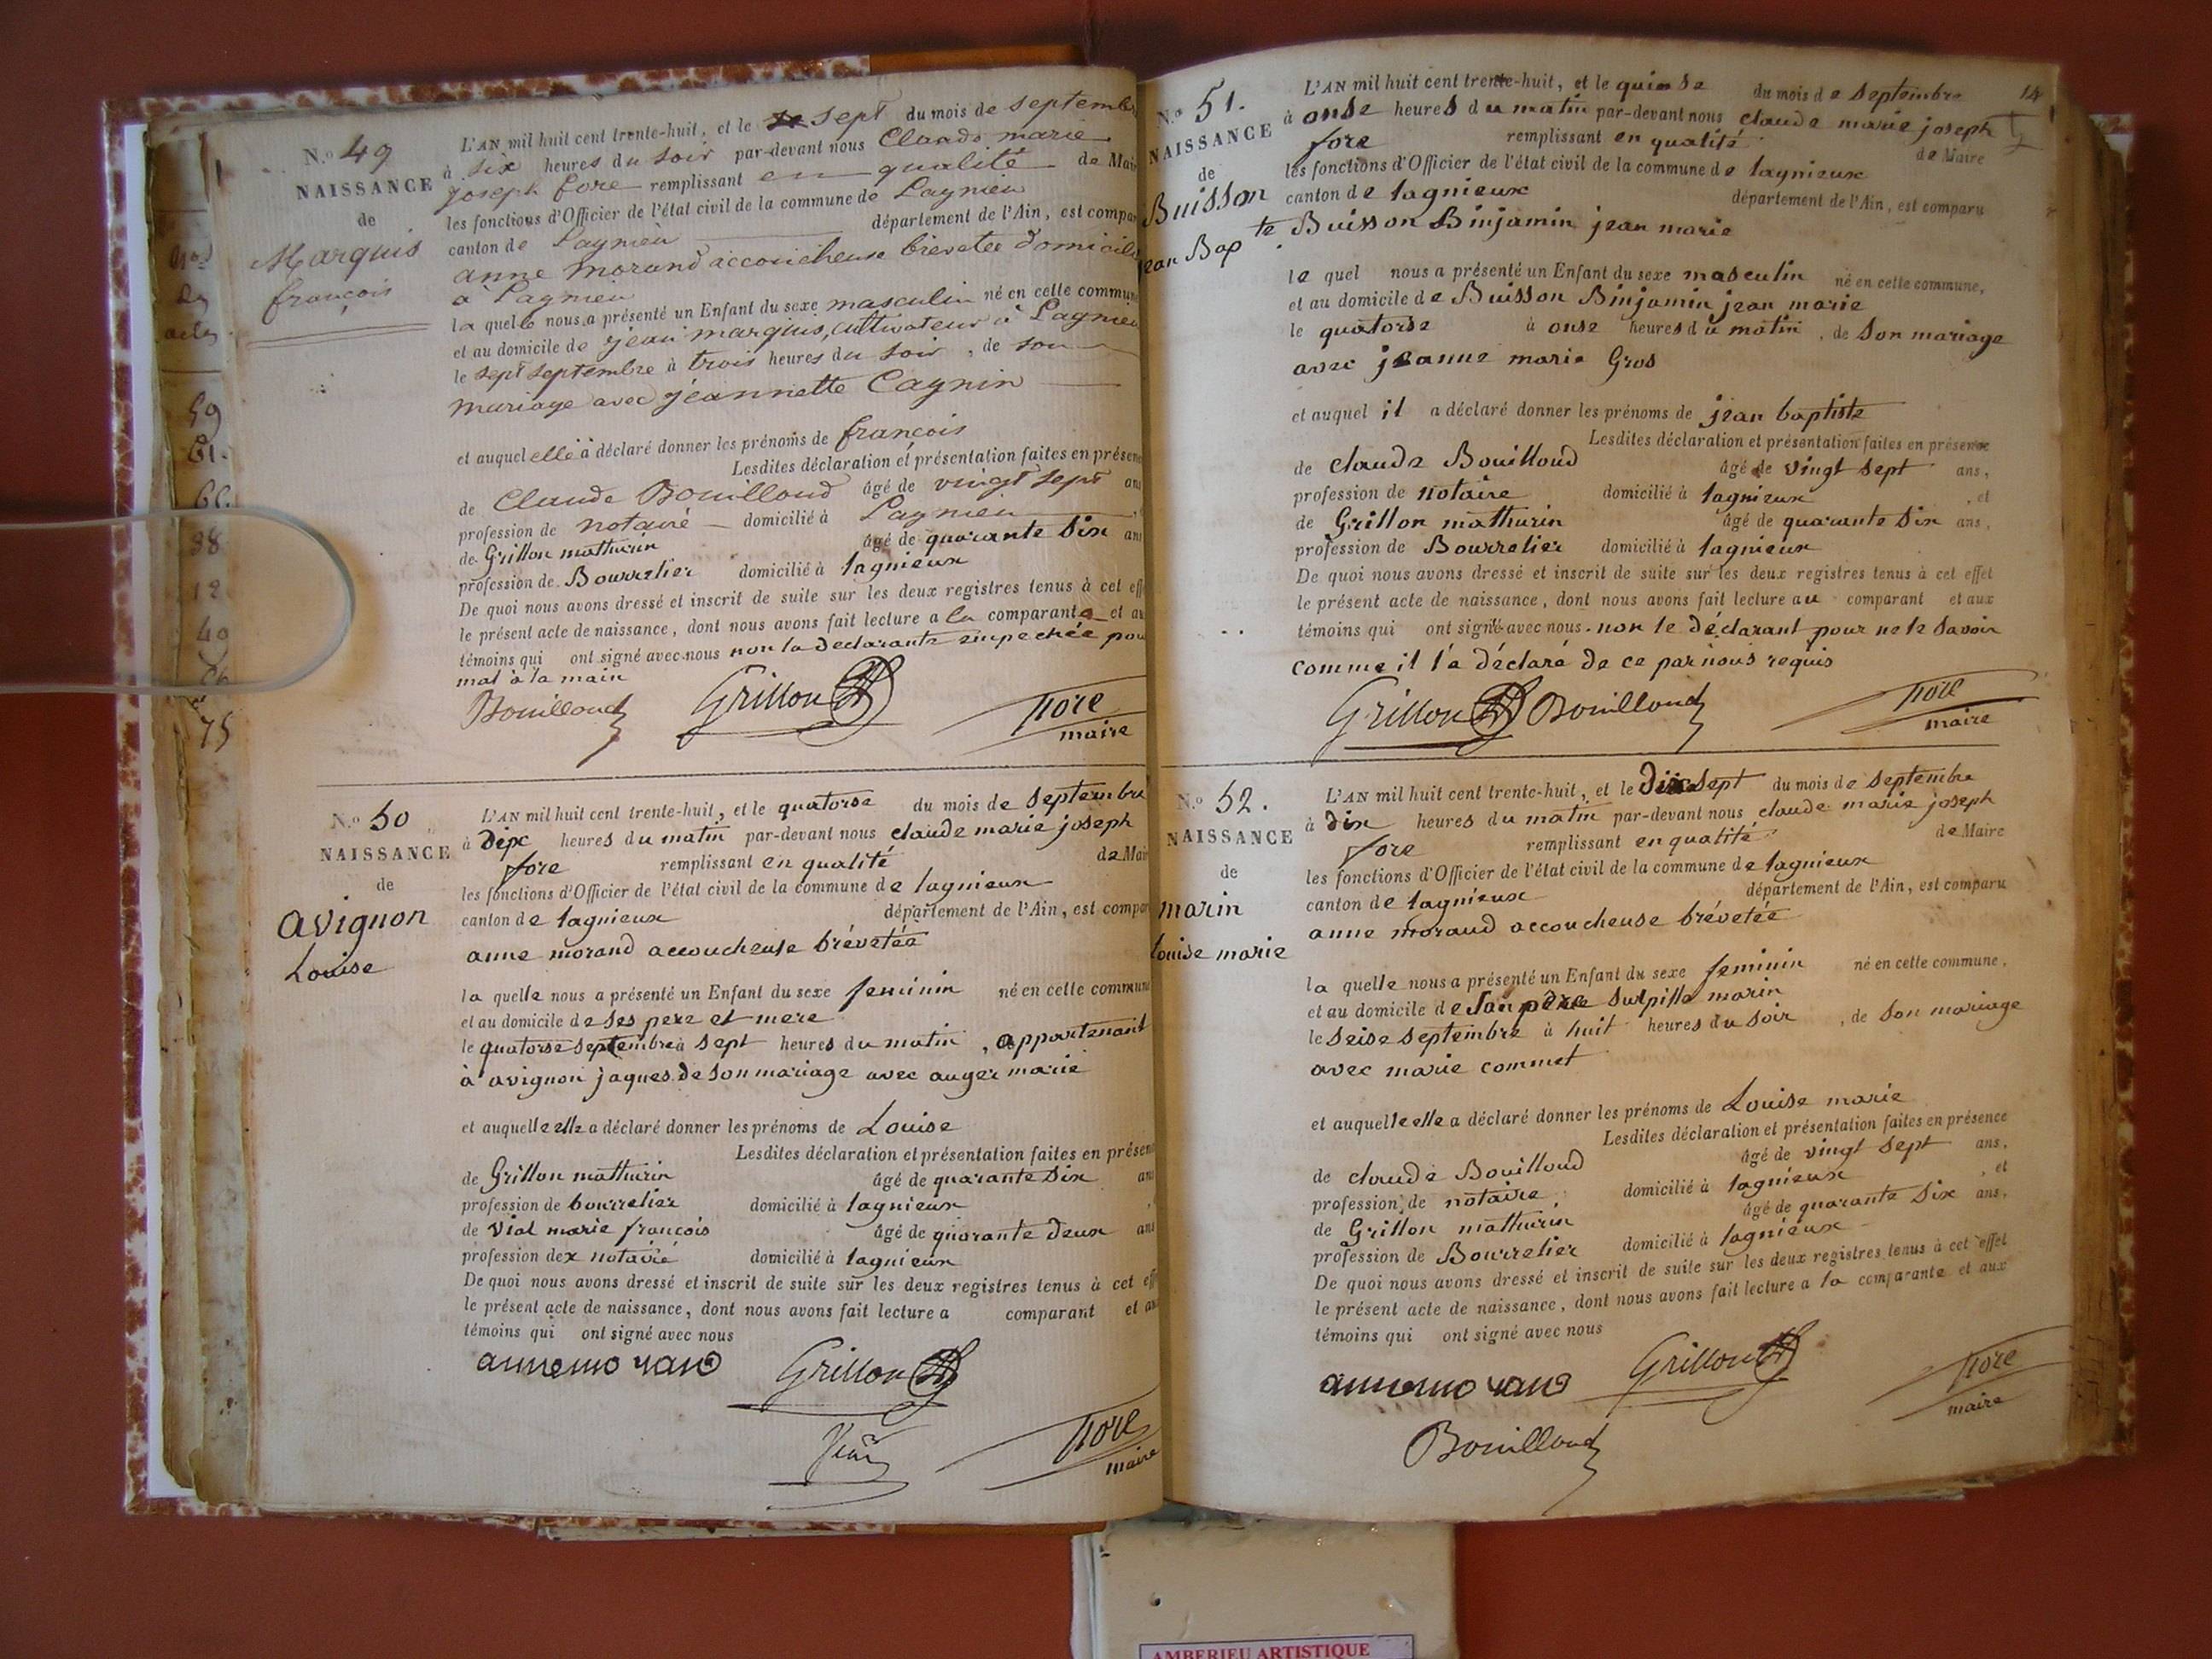 N.o 49
NAISSANCE
de
Marquis
françois
L'AN mil huit cent trente-huit, et le sept du mois de septembre
à six heures du soir par-devant nous Claude marie
joseph fore remplissant en qualité de Mair
les fonctions d'Officier de l'état civil de la commune de Lagnieu
canton de Lagnieu département de l'Ain, est compar
anne morand accoucheuse brevetée domicile
à Lagnieu
la quelle nous a présenté un Enfant du sexe masculin né en cette commune
et au domicile de jean marquis, cultivateur à Lagnieu
le sept septembre à trois heures du soir, de son
mariage avec jeannette Cagnin
et auquel elle a déclaré donner les prénoms de françois
Lesdites déclaration et présentation faites en présen
de Claude Bouilloud âgé de vingt sept an
profession de notaire domicilié à Lagnieu
de Grillon mathurin âgé de quarante Six ans
profession de Bourrelier domicilié à lagnieux
De quoi nous avons dressé et inscrit de suite sur les deux registres tenus à cet eff
le présent acte de naissance, dont nous avons fait lecture a la comparante et au
témoins qui ont signé avec nous non la declarante empechée pour
mal à la main
Bouilloud Grillon fore
maire
N.o 50
NAISSANCE
de
avignon
Louise
L'AN mil huit cent trente-huit, et le quatorse du mois de Septembre
à dix heures du matin par-devant nous claude marie joseph
fore remplissant en qualité de Mair
les fonctions d'Officier de l'état civil de la commune de lagnieux
canton de lagnieux département de l'Ain, est compar
anne morand accoucheuse brévetée
la quelle nous a présenté un Enfant du sexe feminin né en cette commune
et au domicile de ses pere et mere
le quatorse septembre à sept heures du matin, appartenant
à avignon jaques de son mariage avec auger marie
et auquelle elle a déclaré donner les prénoms de Louise
Lesdites déclaration et présentation faites en présen
de Grillon mathurin âgé de quarante Six ans
profession de bourrelier domicilié à lagnieux
de Vial marie françois âgé de quarante deux ans
profession de notaire domicilié à lagnieux
De quoi nous avons dressé et inscrit de suite sur les deux registres tenus à cet eff
le présent acte de naissance, dont nous avons fait lecture a comparant et au
témoins qui ont signé avec nous
anne morand Grillon
Vial fore
maire
14
N.o 51.
NAISSANCE
de
Buisson
jean Bapte
L'AN mil huit cent trente-huit, et le quinse du mois de Septembre
à onse heures du matin par-devant nous claude marie joseph
fore remplissant en qualité de Maire
les fonctions d'Officier de l'état civil de la commune de lagnieux
canton de lagnieux département de l'Ain, est comparu
Buisson Binjamin jean marie
le quel nous a présenté un Enfant du sexe masculin né en cette commune,
et au domicile de Buisson Binjamin jean marie
le quatorse à onse heures du matin, de Son mariage
avec jeanne marie Gros
et auquel il a déclaré donner les prénoms de jean baptiste
Lesdites déclaration et présentation faites en présence
de claude Bouilloud âgé de vingt sept ans,
profession de notaire domicilié à lagnieux, et
de Grillon mathurin âgé de quarante Six ans,
profession de Bourrelier domicilié à lagnieux
De quoi nous avons dressé et inscrit de suite sur les deux registres tenus à cet effet
le présent acte de naissance, dont nous avons fait lecture au comparant et aux
témoins qui ont signé avec nous. non le déclarant pour ne le Savoir
comme il l'a déclaré de ce par nous requis
Grillon Bouilloud fore
maire
N.o 52.
NAISSANCE
de
marin
Louise marie
L'AN mil huit cent trente-huit, et le Dix Sept du mois de Septembre
à dix heures du matin par-devant nous claude marie joseph
fore remplissant en qualité de Maire
les fonctions d'Officier de l'état civil de la commune de lagnieux
canton de lagnieux département de l'Ain, est comparu
anne morand accoucheuse brévetée
la quelle nous a présenté un Enfant du sexe feminin né en cette commune,
et au domicile de Son père Sulpille marin
le Seise Septembre à huit heures du soir, de Son mariage
avec marie commet
et auquelle elle a déclaré donner les prénoms de Louise marie
Lesdites déclaration et présentation faites en présence
de claude Bouilloud âgé de vingt sept ans,
profession de notaire domicilié à lagnieux, et
de Grillon mathurin âgé de quarante Six ans,
profession de Bourrelier domicilié à lagnieux
De quoi nous avons dressé et inscrit de suite sur les deux registres tenus à cet effet
le présent acte de naissance, dont nous avons fait lecture a la comparante et aux
témoins qui ont signé avec nous
anne morand Grillon fore
maire
Bouilloud
AMBERIEU ARTISTIQUE